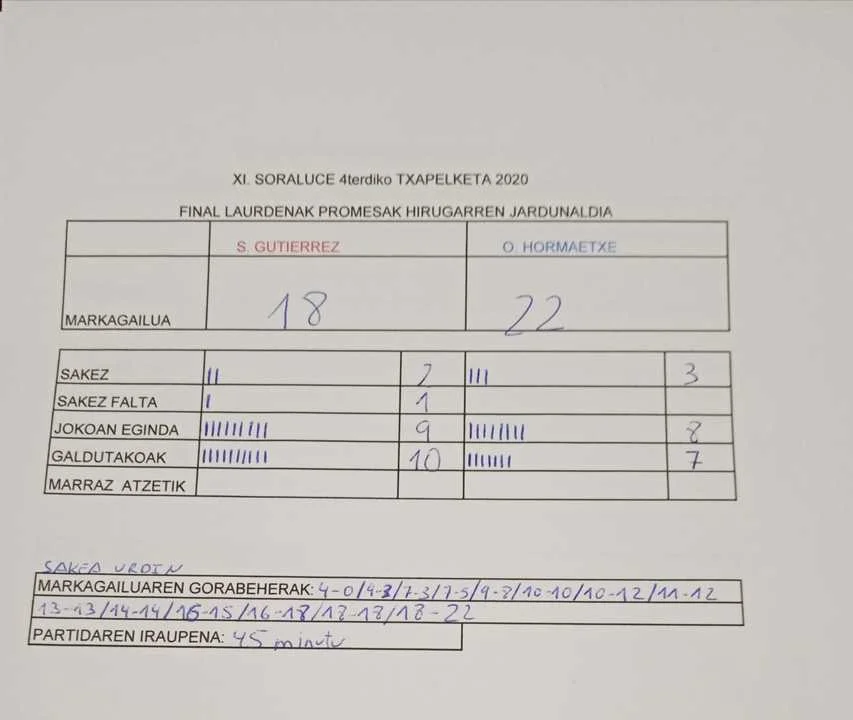 XI. SORALUCE 4terdiko TXAPELKETA 2020
FINAL LAURDENAK PROMESAK HIRUGARREN JARDUNALDIA
S. GUTIERREZ O. HORMAETXE
MARKAGAILUA 18 22
SAKEZ 2 3
SAKEZ FALTA 1
JOKOAN EGINDA 9 8
GALDUTAKOAK 10 7
MARRAZ ATZETIK
SAKEA URDIN
MARKAGAILUAREN GORABEHERAK: 4-0/4-3/7-3/7-5/9-8/10-10/10-12/11-12
13-13/14-14/16-15/16-18/18-18/18-22
PARTIDAREN IRAUPENA: 45 minutu